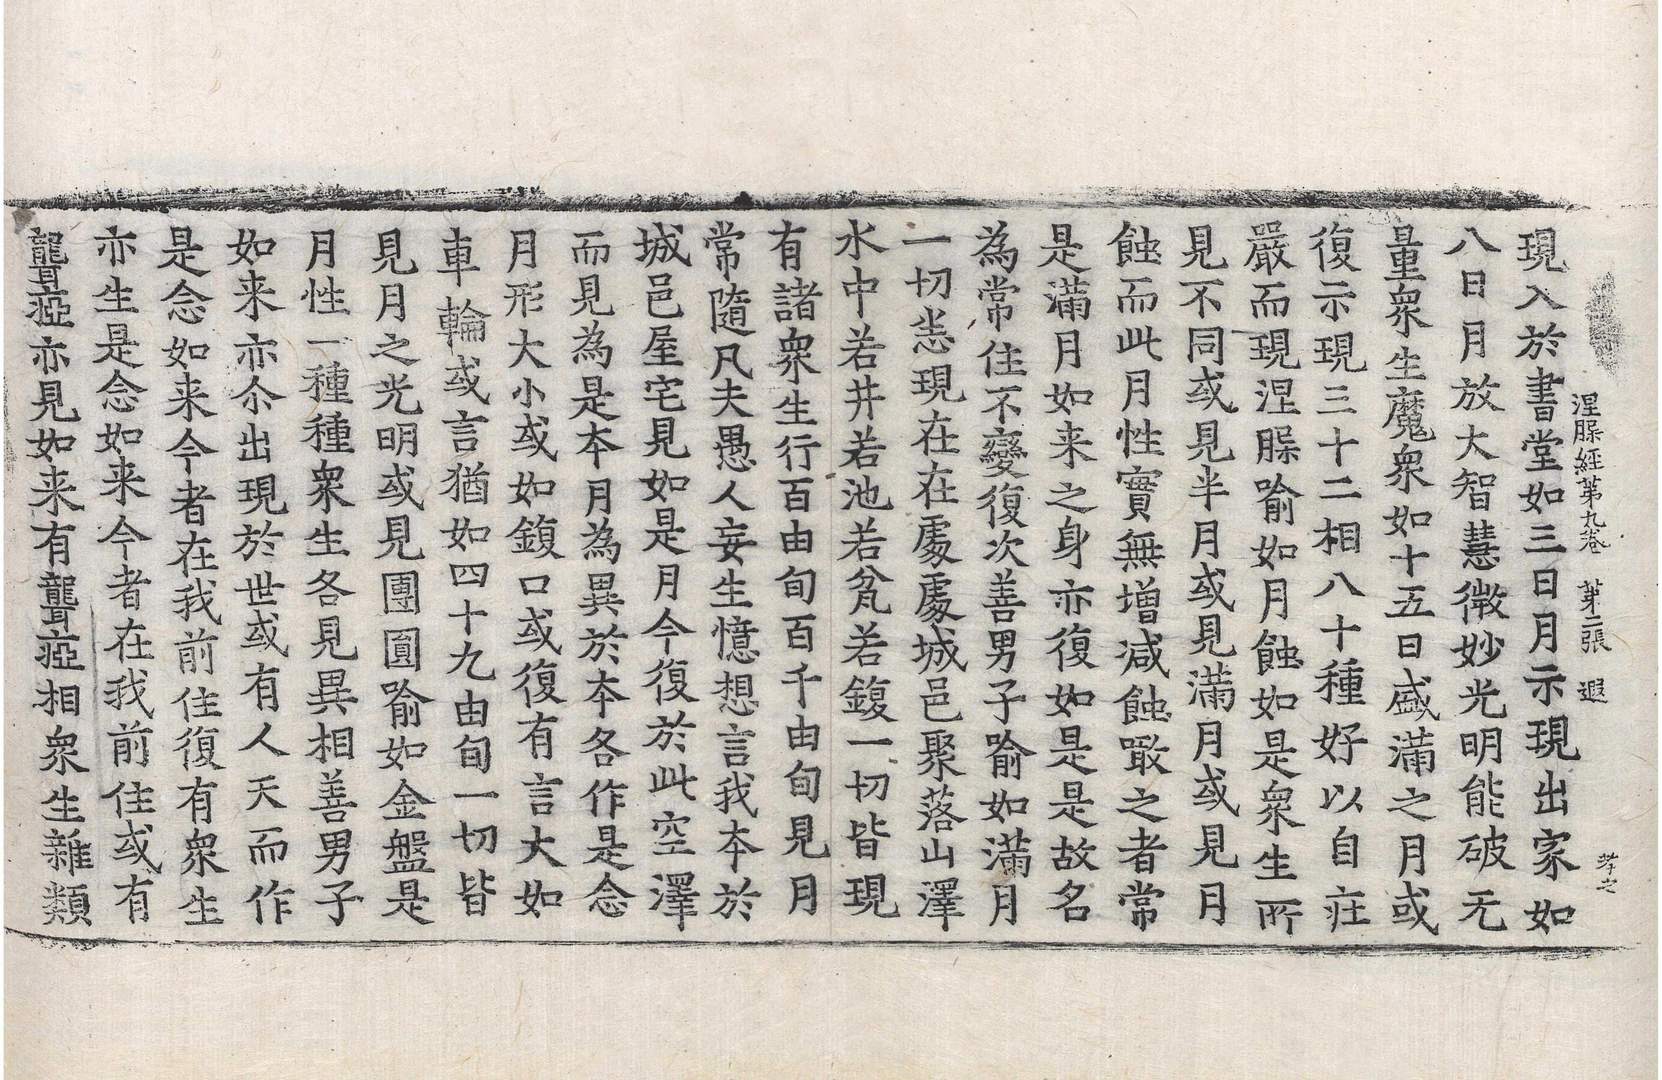 涅槃經第九卷 第二張 遐 孝之
現入於書堂如三日月示現出家如
八日月放大智慧微妙光明能破无
量衆生魔衆如十五日盛滿之月或
復示現三十二相八十種好以自莊
嚴而現涅槃喻如月蝕如是衆生所
見不同或見半月或見滿月或見月
蝕而此月性實無增減蝕噉之者常
是滿月如来之身亦復如是是故名
為常住不變復次善男子喻如滿月
一切悉現在在處處城邑聚落山澤
水中若井若池若瓫若鍑一切皆現
有諸衆生行百由旬百千由旬見月
常隨凡夫愚人妄生憶想言我本於
城邑屋宅見如是月今復於此空澤
而見為是本月為異於本各作是念
月形大小或如鍑口或復有言大如
車輪或言猶如四十九由旬一切皆
見月之光明或見團圓喻如金盤是
月性一種種衆生各見異相善男子
如来亦尒出現於世或有人天而作
是念如来今者在我前住復有衆生
亦生是念如来今者在我前住或有
聾瘂亦見如来有聾瘂相衆生雜類